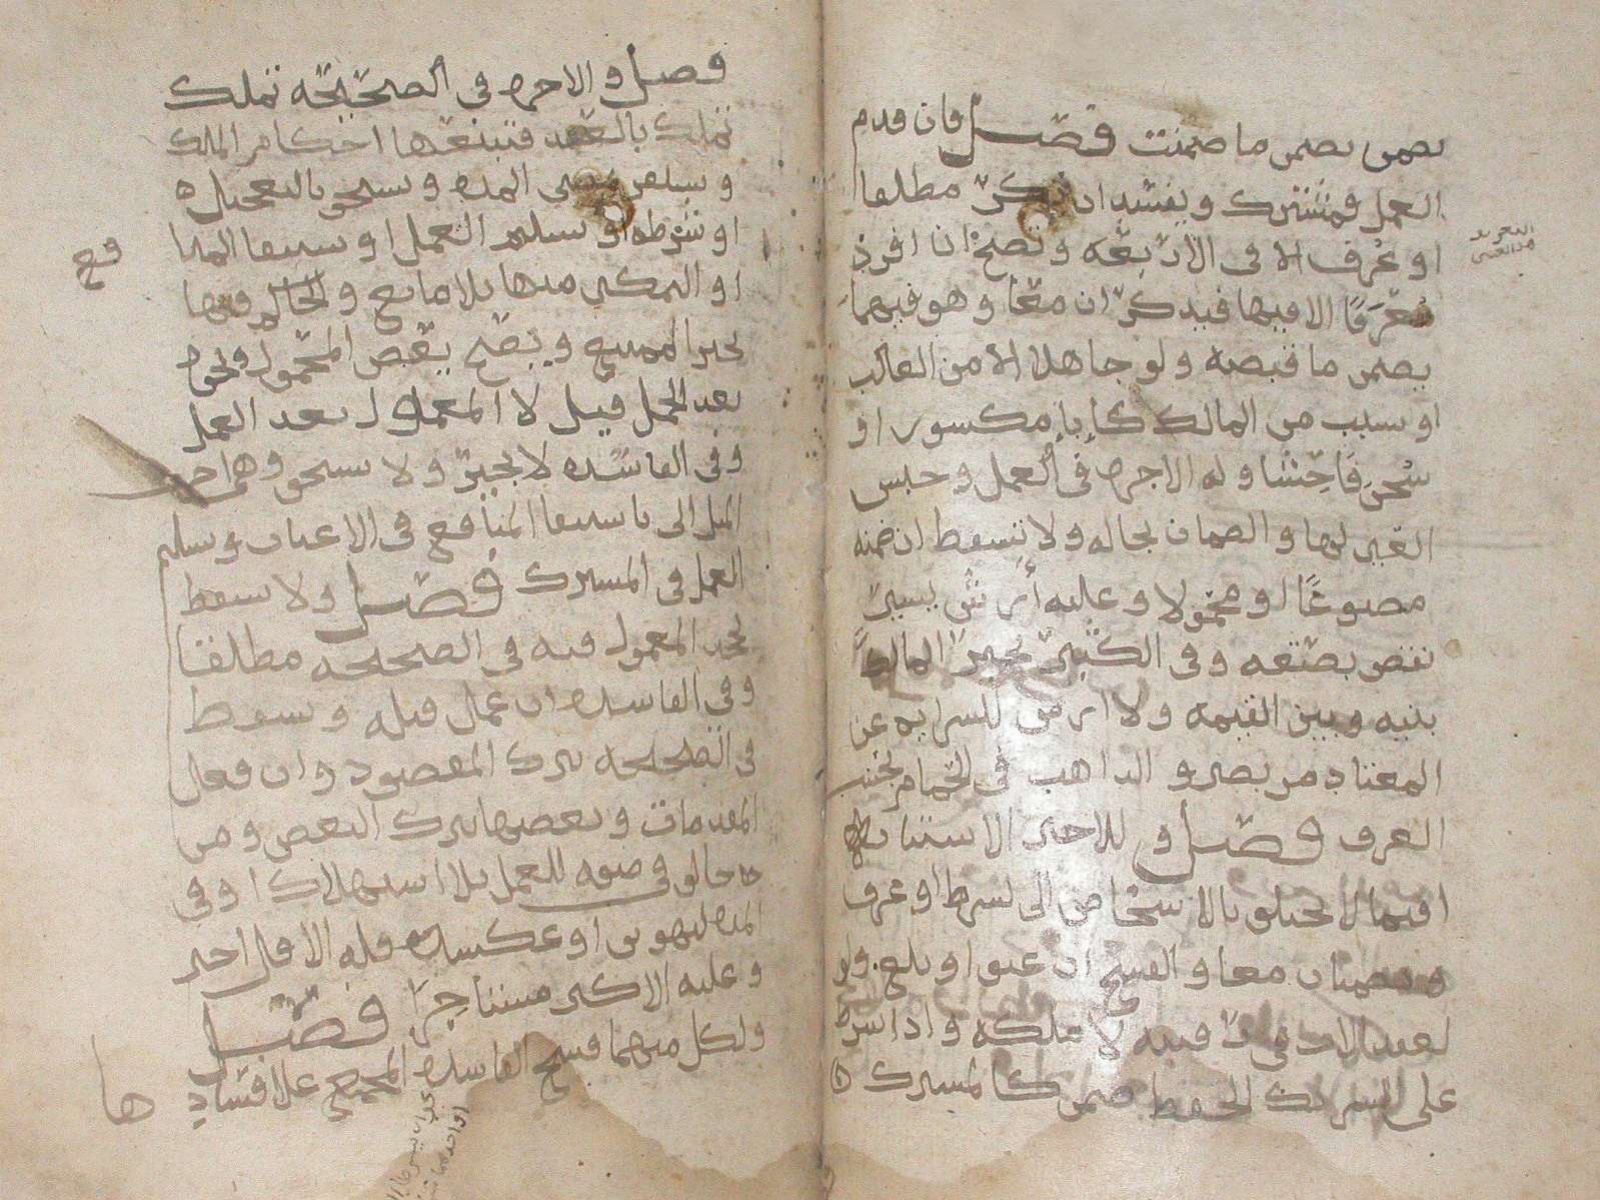 يضمن يضمن ما ضمنت فصل فان قدم
العمل فمشترك ويفسد ان نكر مطلقا
او عرف الا فى الاربعة وتصح ان افرد
معرفا الا فيها فيذكران معا وهو فيهما
يضمن ما قبضه ولو جاهلا الا من الغالب
او بسبب من المالك كاناء مكسور او
شحن فاحشا وله الاجرة فى العمل وحبس
العين لها والضمان بحاله ولا تسقط ان ضمنه
مصبوغا او محمولا وعليه أرش يسير
نقص بصنعه وفى الكثير يخير المالك
بينه وبين القيمة ولا ارش للسراية عن
المعتاد من بصير والذاهب فى الحمام بحسب
العرف فصل وللاجير الاستنابة
فيما لا يختلف بالاشخاص الا لشرط او عرف
ويضمنان معا والفسخ ان عتق او بلغ ولو
لعقد الاب فى رقبته لا ملكه واذا شرط
على الشريك الحفظ ضمن كالمشترك
فصل والاجرة فى الصحيحة تملك
تملك بالعقد فتتبعها احكام الملك
وتستقر بمضى المدة وتستحق بالتعجيل
او شرطه او تسليم العمل او استيفاء المنافع
او التمكين منها بلا مانع والحاكم فيها
يجبر الممتنع ويصح ببعض المحمول ونحوه
بعد الحمل قيل لا المعمول بعد العمل
وفى الفاسدة لا يجبر ولا تستحق وهى اجرة
المثل الا باستيفاء المنافع فى الاعيان وتسليم
العمل فى المشترك فصل ولا تسقط
بجحد المعمول فيه فى الصحيحة مطلقا
وفى الفاسدة ان عمل قبله وتسقط
فى الصحيحة بترك المقصود وان فعل
المقدمات وبعضها بترك البعض ومن
خالف فى صفة للعمل بلا استهلاك او فى
المدة لتهوين او عكسه فله الاقل اجيرا
وعليه الاكثر مستاجرا فصل
ولكل منهما فسخ الفاسدة المجمع على فساد
ها